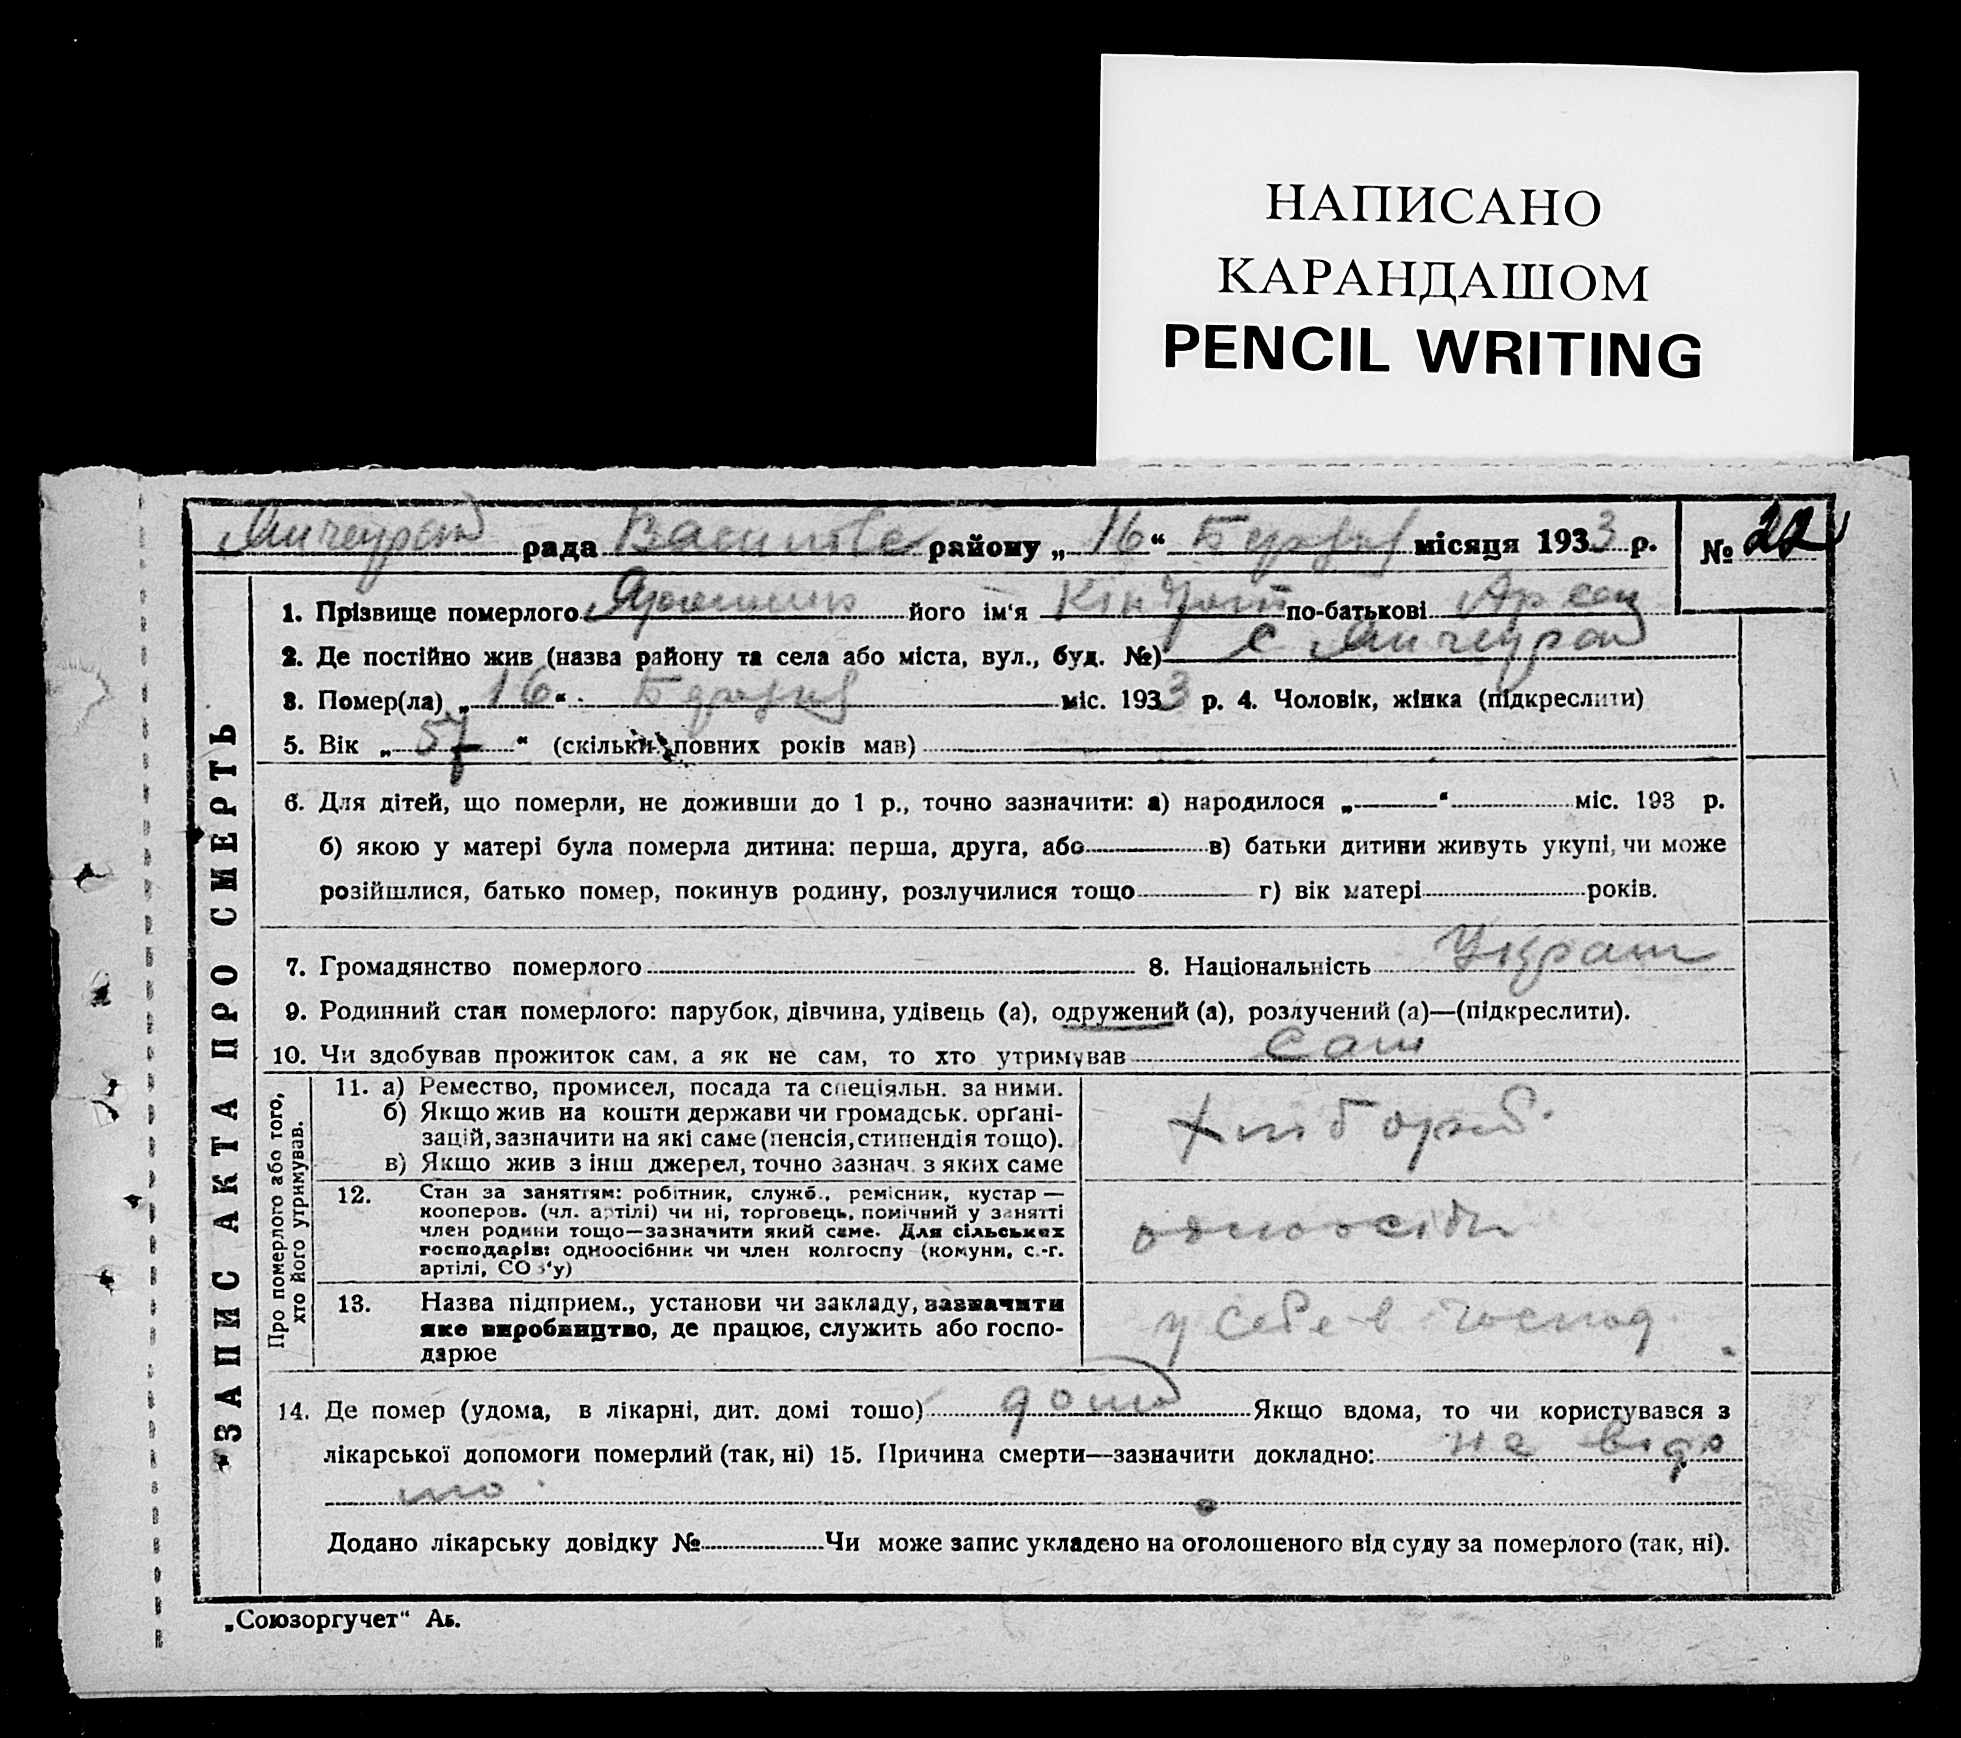 НАПИСАНО
КАРАНДАШОМ
PENCIL WRITING
рада Василкве району „16“ місяця 1933 р. № 22
1. Прізвище померлого його ім'я Кіндрат по-батькові Арсен
2. Де постійно жив (назва району та села або міста, вул., буд. №) с
3. Помер(ла) „16“ міс. 1933 р. 4. Чоловік, жінка (підкреслити)
5. Вік „57“ (скільки повних років мав)
6. Для дітей, що померли, не доживши до 1 р., точно зазначити: а) народилося „ “ міс. 193 р.
б) якою у матері була померла дитина: перша, друга, або в) батьки дитини живуть укупі, чи може
розійшлися, батько помер, покинув родину, розлучилися тощо г) вік матері років.
7. Громадянство померлого 8. Національність Украш
9. Родинний стан померлого: парубок, дівчина, удівець (а), одружений (а), розлучений (а)—(підкреслити).
10. Чи здобував прожиток сам, а як не сам, то хто утримував сам
ЗАПИС АКТА ПРО СМЕРТЬ
Про померлого або того,
хто його утримував.
11. а) Ремество, промисел, посада та спеціяльн. за ними.
б) Якщо жив на кошти держави чи громадськ. орґані-
зацій, зазначити на які саме (пенсія, стипендія тощо).
в) Якщо жив з інш джерел, точно зазнач. з яких саме
хлібороб.
12. Стан за заняттям: робітник, служб., ремісник, кустар —
кооперов. (чл. артілі) чи ні, торговець, помічний у занятті
член родини тощо—зазначити який саме. Для сільських
господарів: одноосібник чи член колгоспу (комуни, с.-г.
артілі, СОЗ'у)
одноосібн
13. Назва підприєм., установи чи закладу, зазначити
яке виробництво, де працює, служить або госпо-
дарює
у себе в господ.
14. Де помер (удома, в лікарні, дит. домі тошо) дома Якщо вдома, то чи користувався з
лікарської допомоги померлий (так, ні) 15. Причина смерти—зазначити докладно: не відо
мо.
Додано лікарську довідку № Чи може запис укладено на оголошеного від суду за померлого (так, ні).
„Союзоргучет“ Аб.